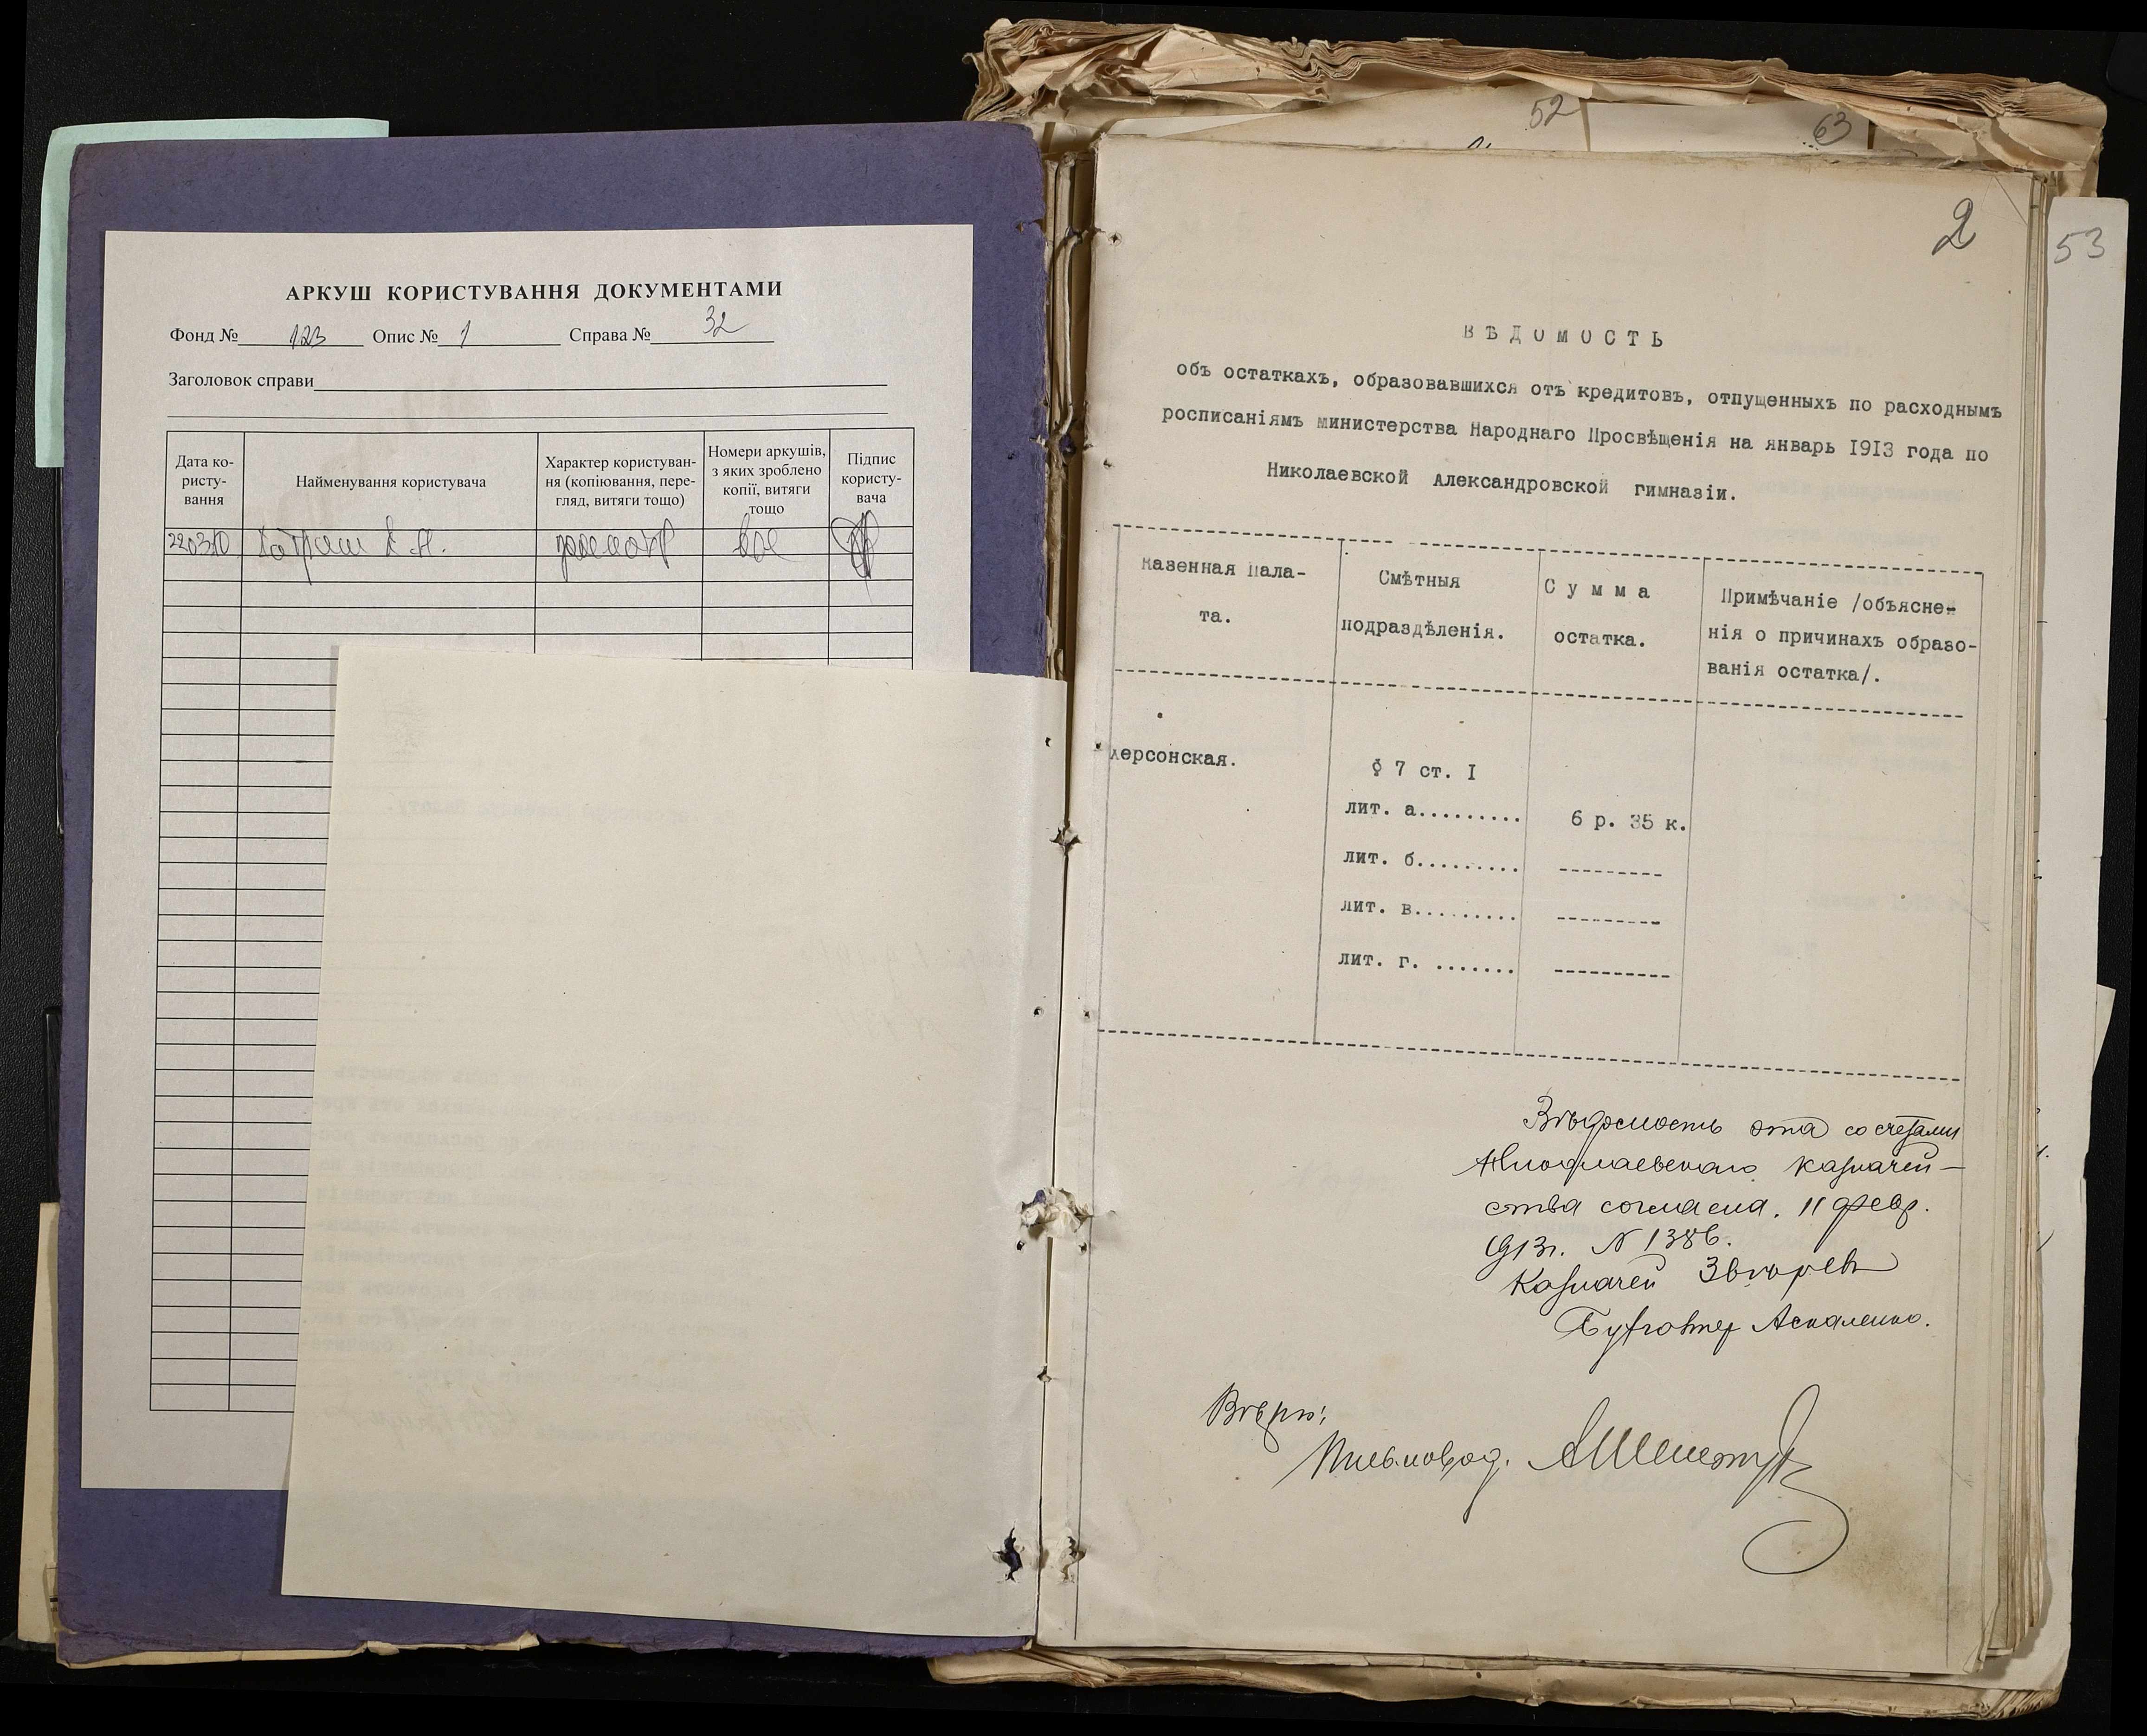 АРКУШ КОРИСТУВАННЯ ДОКУМЕНТАМИ
Фонд № 123 Опис № 1 Справа № 32
Заголовок справи
Дата ко-
ристу-
вання
Найменування користувача
Характер користуван-
ня (копіювання, пере-
гляд, витяги тощо)
Номери аркушів,
з яких зроблено
копії, витяги
тощо
Підпис
користу-
вача
220310 все
52
63
53
2
ВѢДОМОСТЬ
объ остаткахъ, образовавшихся отъ кредитовъ, отпущенныхъ по расходнымъ
росписаніямъ министерства Народнаго Просвѣщенія на январь 1913 года по
Николаевской Александровской гимназіи.
Казенная Пала-
та.
Смѣтныя
подраздѣленія.
Сумма
остатка.
Примѣчаніе /объясне-
нія о причинахъ образо-
ванія остатка/.
Херсонская.
§ 7 ст. I
лит. а......... 6 р. 35 к.
лит. б......... ---------
лит. в......... ---------
лит. г. ....... ----------
Вѣдомость эта со счетами
Николаевскаго казначей-
ства согласна. 11 февр.
1913г. N 1386.
Казначей
Бухгалтер
Вѣрно:
Письмовод.